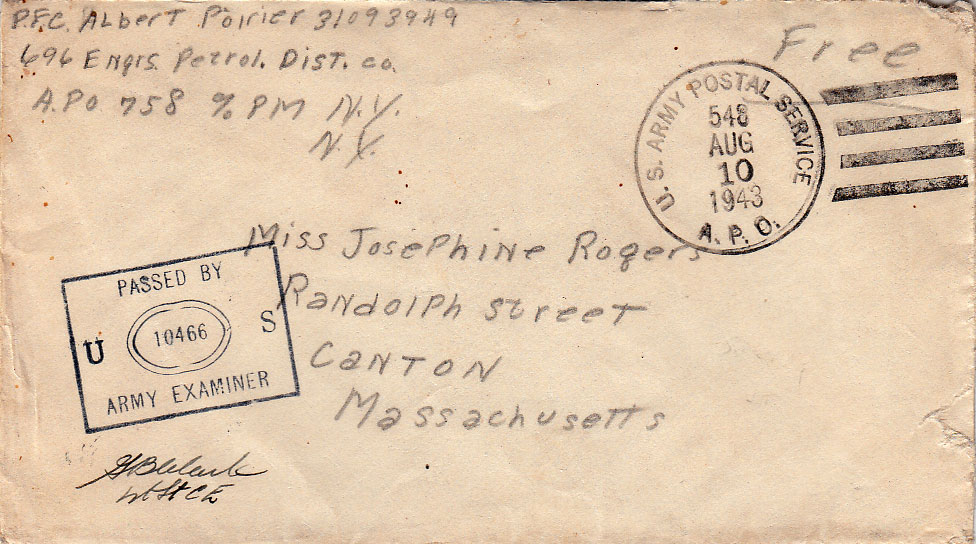 P.F.C. Albert Poirier 31093949
696 Engrs. Petrol. Dist. co.
A.Po 758 % PM N.Y.
N.Y.
Free
U.S. ARMY POSTAL SERVICE
548
AUG
10
1943
A.P.O.
Miss Josephine Rogers
Randolph Street
Canton
Massachusetts
PASSED BY
U 10466 S
ARMY EXAMINER